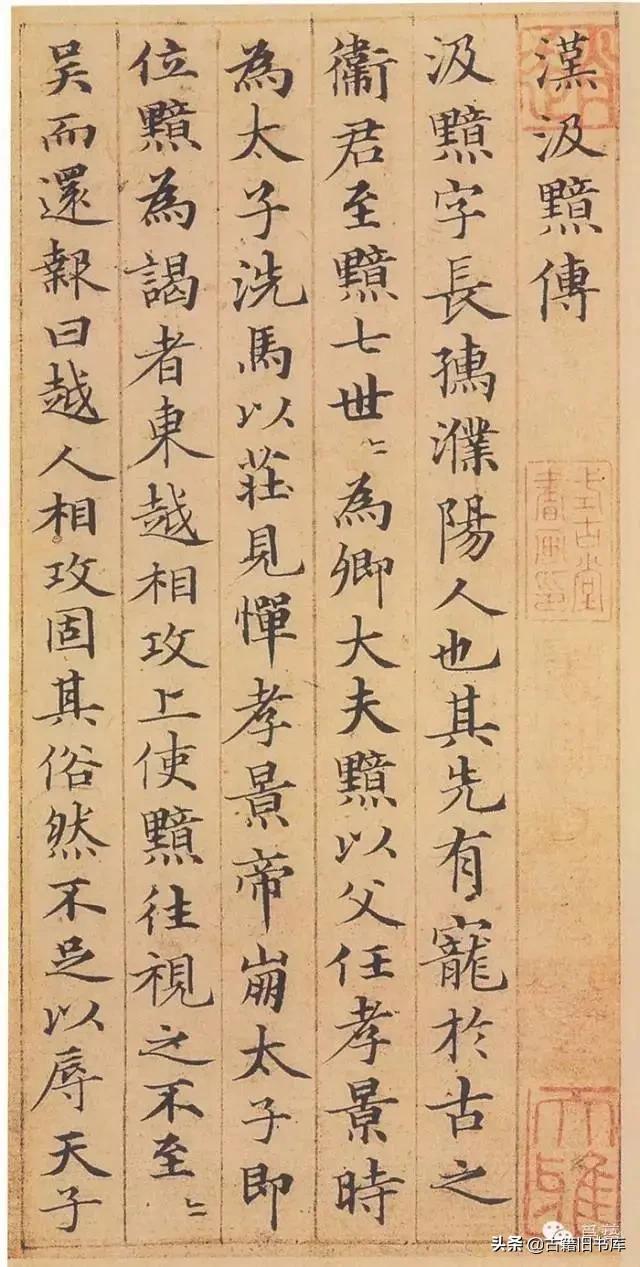 漢汲黯傳
汲黯字長孺濮陽人也其先有寵於古之
衞君至黯七世〻為卿大夫黯以父任孝景時
為太子洗馬以莊見憚孝景帝崩太子即
位黯為謁者東越相攻上使黯往視之不至〻
吴而還報曰越人相攻固其俗然不足以辱天子
大雅
头条 @古籍旧书库